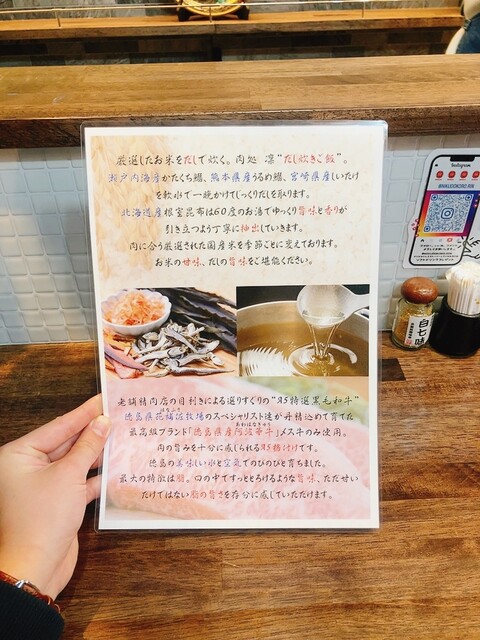 厳選したお米をだしで炊く。肉処 凛"だし炊きご飯"。
瀬戸内海産かたくち鰯、熊本県産うるめ鰯、宮崎県産しいたけ
を軟水で一晩かけてじっくりだしを取ります。
北海道産根室昆布は60度のお湯でゆっくり旨味と香りが
引き立つよう丁寧に抽出していきます。
肉に合う厳選された国産米を季節ごとに変えております。
お米の甘味、だしの旨味をご堪能ください。
老舗精肉店の目利きによる選りすぐりの"A5特選黒毛和牛"
はなふう
徳島県花補佐牧場のスペシャリスト達が丹精込めて育てた
あわはなぎゅう
最高級ブランド「徳島県産阿波華牛」メス牛のみ使用。
肉の旨みを十分に感じられるA5格付けです。
徳島の美味しい水と空気でのびのびと育ちました。
最大の特徴は脂。口の中ですっととろけるような旨味、ただ甘い
だけではない脂の旨さを存分に感じていただけます。
Instagram
白七味